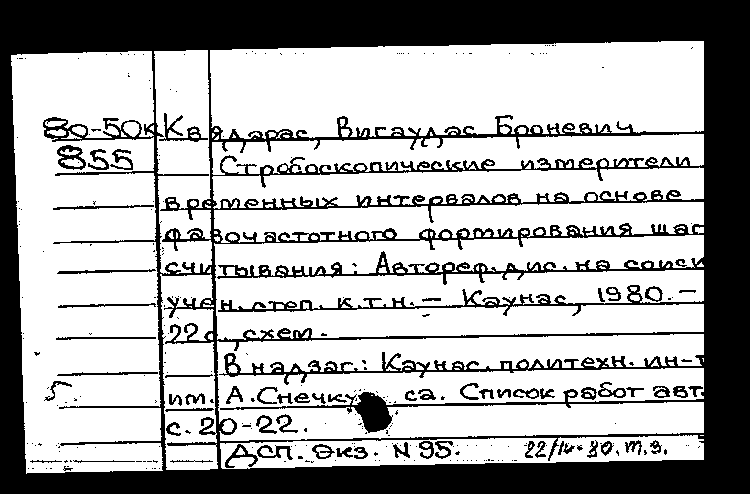 80-50к Квядарас, Вигаудас Броневич
855 Стробоскопические измерители
временных интервалов на основе
фазочастотного формирования шаг
считывания: Автореф. дис. на соиск
учен. степ. к.т.н. — Каунас, 1980. —
22с., схем.
В надзаг.: Каунас. политехн. ин-т
им. А. Снечкуса. Список работ авт.
с. 20-22.
ДСП. Экз. N 95. 22/IV-80. т.з.